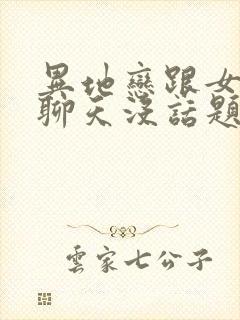 異地戀跟女
聊天沒話題
雲家七公子